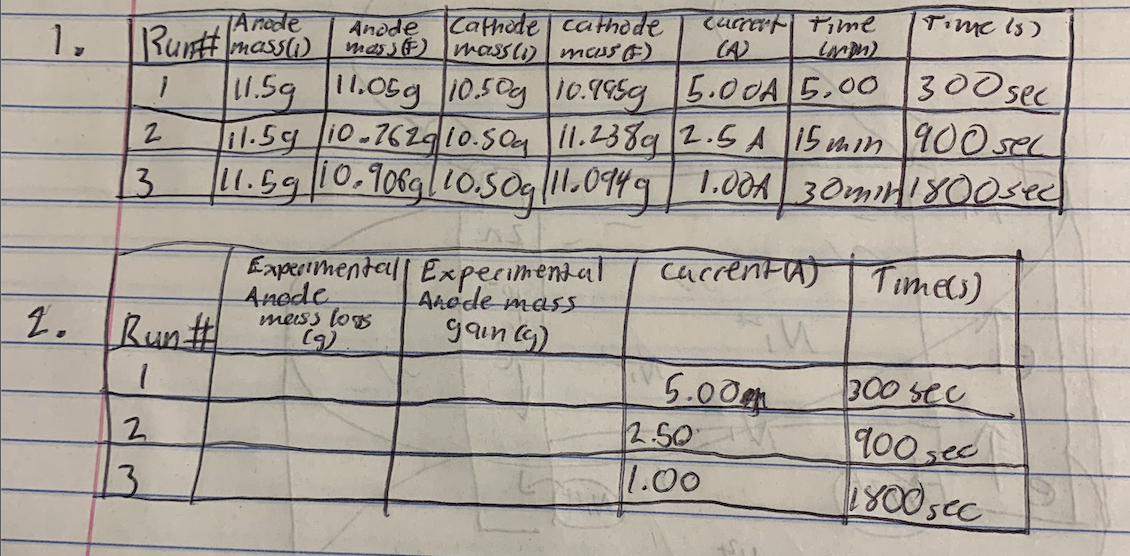 1.
Run# Anode mass(i) Anode mass(F) Cathode mass(i) cathode mass(F) current (A) Time (min) Time (s)
1 11.5g 11.05g 10.50g 10.995g 5.00A 5.00 300sec
2 11.5g 10.762g 10.50g 11.238g 2.5 A 15min 900sec
3 11.5g 10.906g 10.50g 11.094g 1.00A 30min 1800sec
2.
Run# Experimental Anode mass loss (g) Experimental Anode mass gain(g) current(A) Time(s)
1 5.00 300 sec
2 2.50 900 sec
3 1.00 1800sec